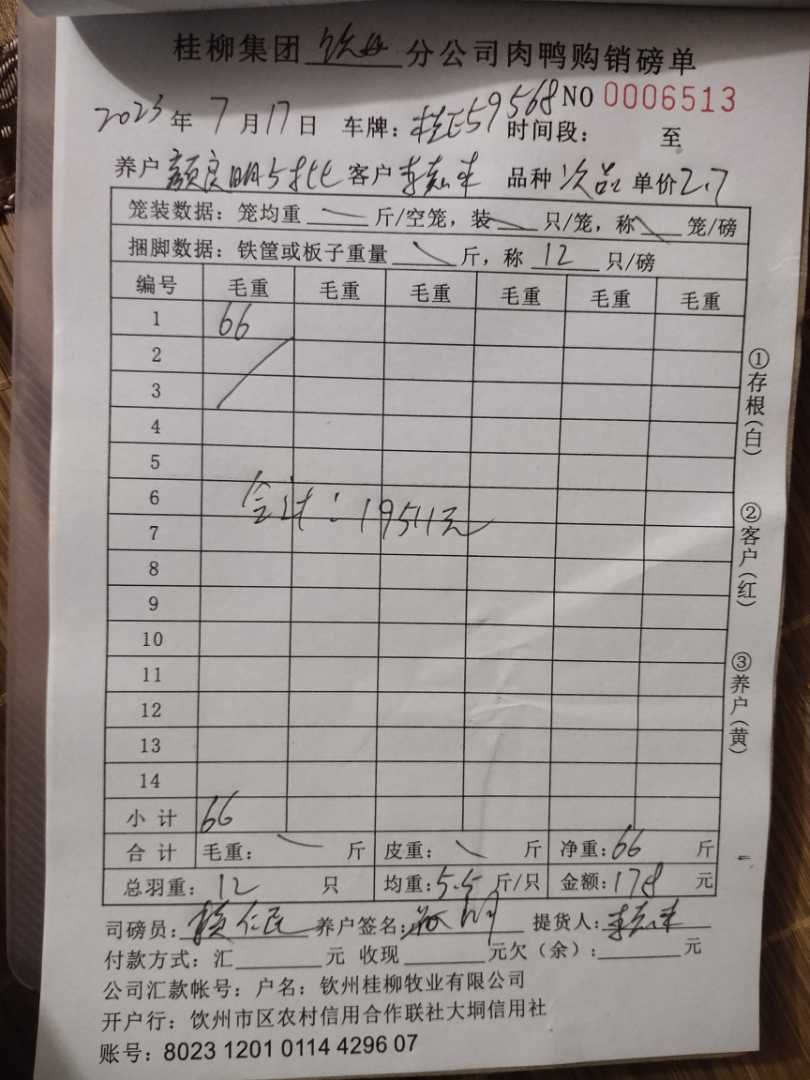 桂柳集团 钦州 分公司肉鸭购销磅单
2023 年 7 月 17 日 车牌: 桂E59568 NO 0006513
时间段: 至
养户 颜良明5批 客户 品种 次品 单价 2.7
笼装数据: 笼均重 斤/空笼, 装 只/笼, 称 笼/磅
捆脚数据: 铁筐或板子重量 斤, 称 12 只/磅
编号 毛重 毛重 毛重 毛重 毛重 毛重
1 66
2
3
4
5
6
合计: 19511元
7
8
9
10
11
12
13
14
小计 66
合计 毛重: 斤 皮重: 斤 净重: 66 斤
总羽重: 12 只 均重: 5.5 斤/只 金额: 178 元
司磅员: 养户签名: 提货人:
付款方式: 汇 元 收现 元欠(余): 元
公司汇款帐号: 户名: 钦州桂柳牧业有限公司
开户行: 饮州市区农村信用合作联社大垌信用社
账号: 8023 1201 0114 4296 07
①存根(白)
②客户(红)
③养户(黄)